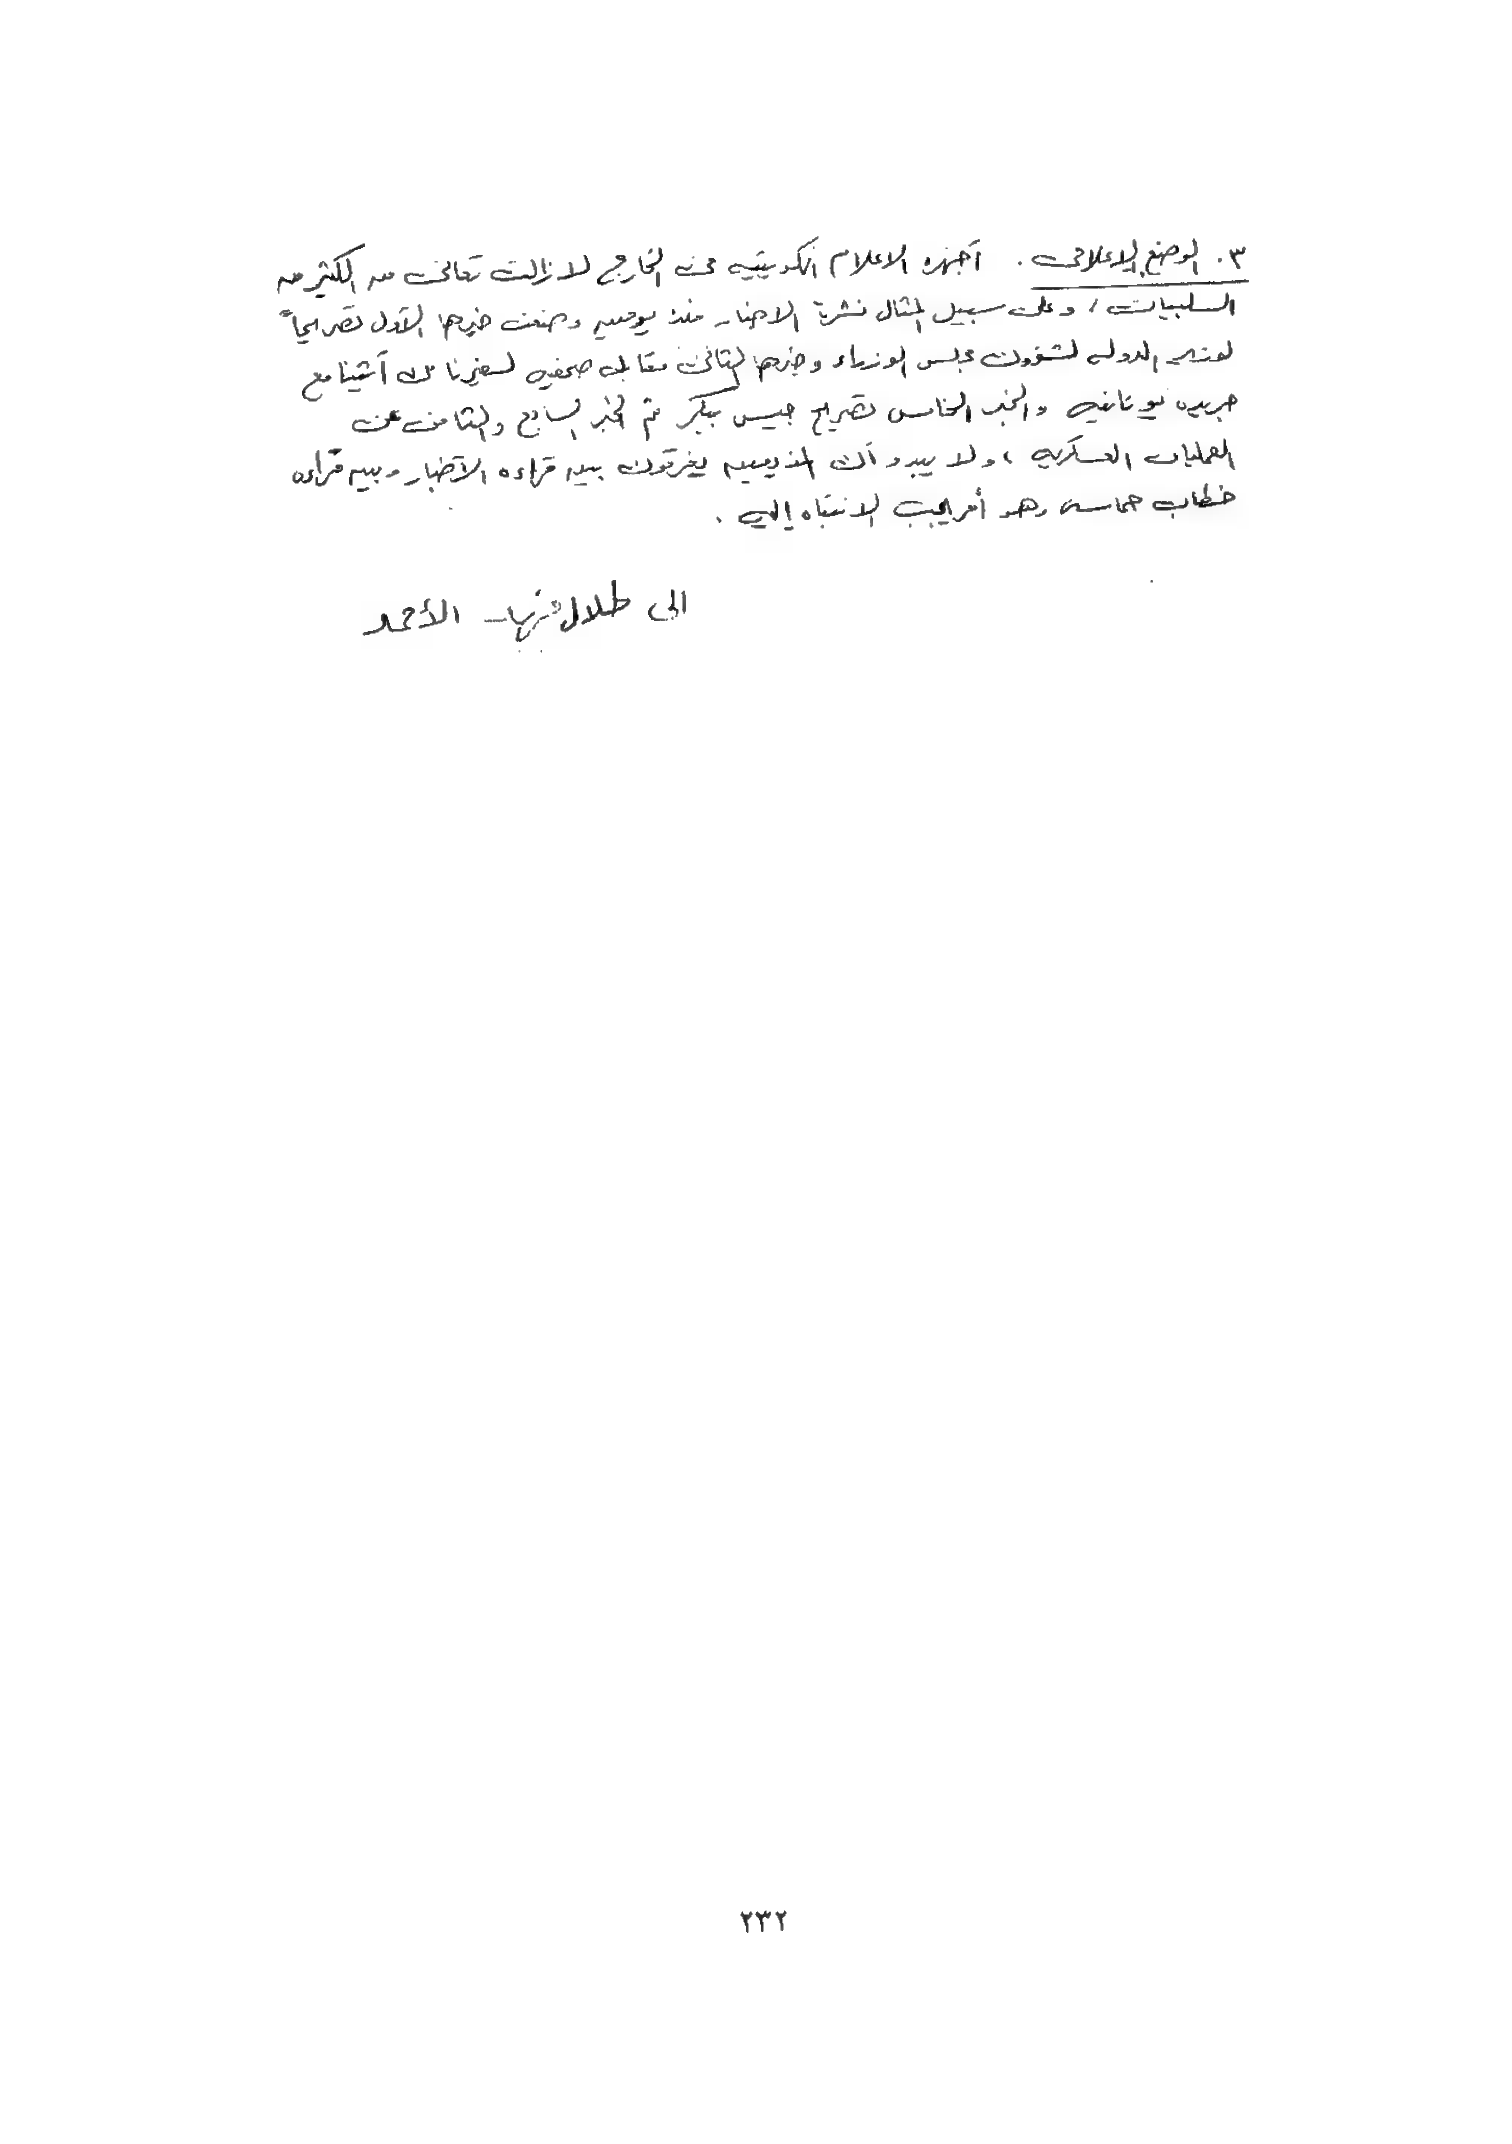 ٣. الوضع الاعلامي . أجهزه الاعلام الكويتيه في الخارج لا زالت تعاني من الكثير من
السلبيات ، وعلى سبيل المثال نشرة الاخبار منذ يومين وضعت خبرها الأول تصريحاً
لوزير الدوله لشؤون مجلس الوزراء وخبرها الثاني مقابله صحفيه لسفيرنا في أثينا مع
جريده يونانيه والخبر الخامس تصريح جيمس بيكر ثم الخبر السابع والثامن عن
العمليات العسكريه ، ولا يبدو أن المذيعين يفرقون بين قراءه الأخبار وبين قراءه
خطاب حماسي وهو أمر يجب الانتباه إليه .
الى طلال الأحمد
٢٣٢